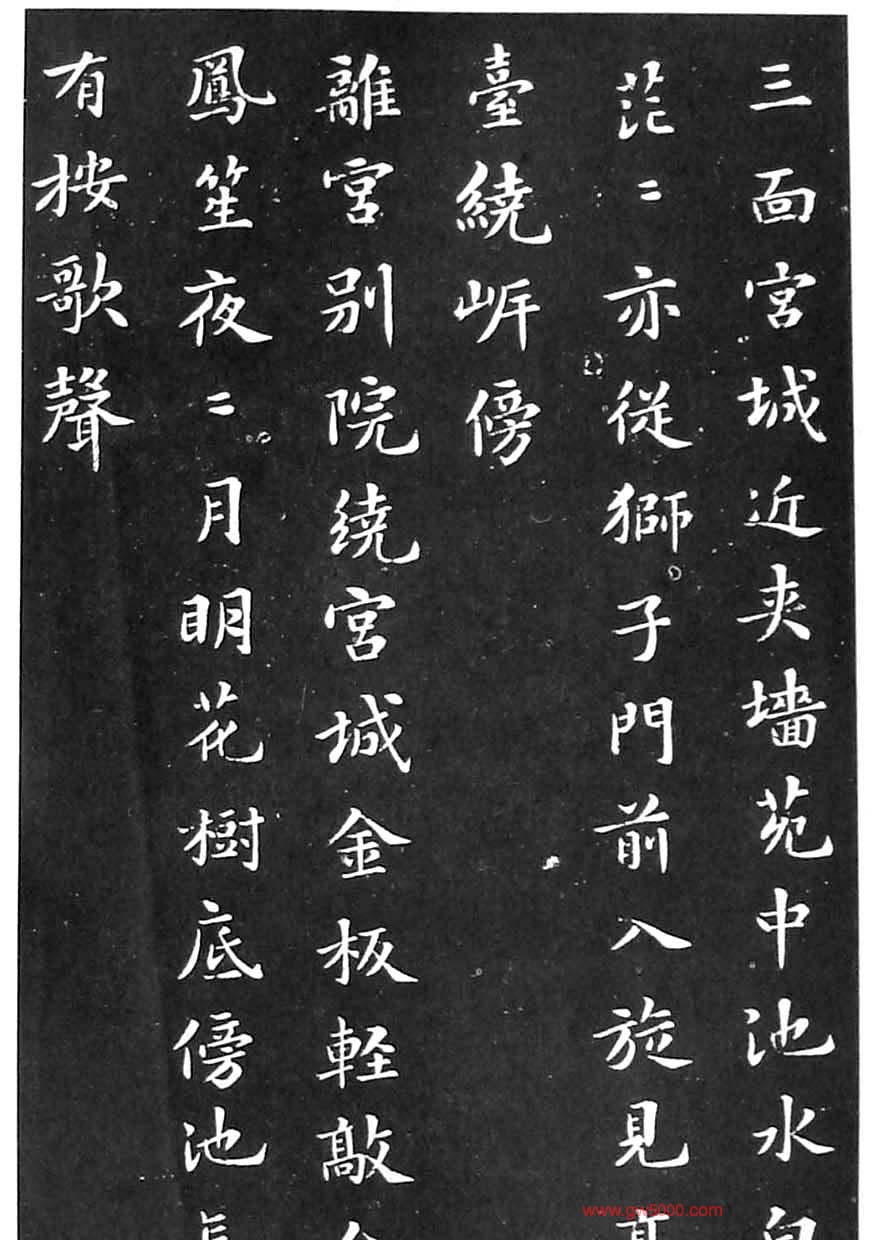 三面宮城近夾墻苑中池水白
茫〻亦從獅子門前入旋見亭
臺繞岸傍
離宮別院繞宮城金板軽敲合
鳳笙夜〻月明花樹底傍池長
有按歌聲
www.gvj6000.com